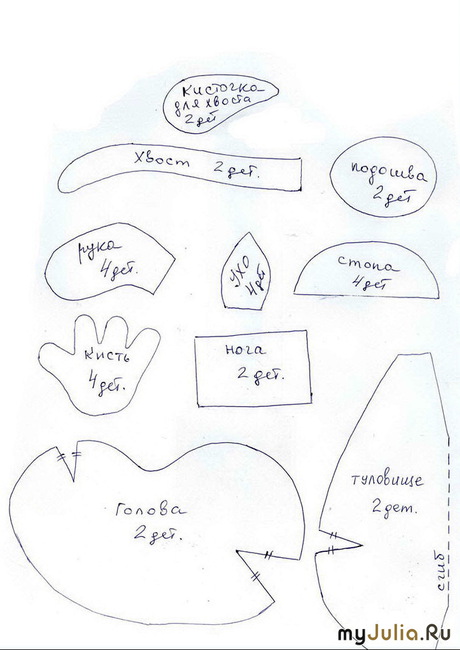 кисточка
для хвоста
2 дет
хвост 2 дет.
подошва
2 дет
рука
4 дет.
ухо
4 дет
стопа
4 дет
кисть
4 дет.
нога
2 дет.
голова
2 дет.
туловище
2 дет.
сгиб
myJulia.Ru